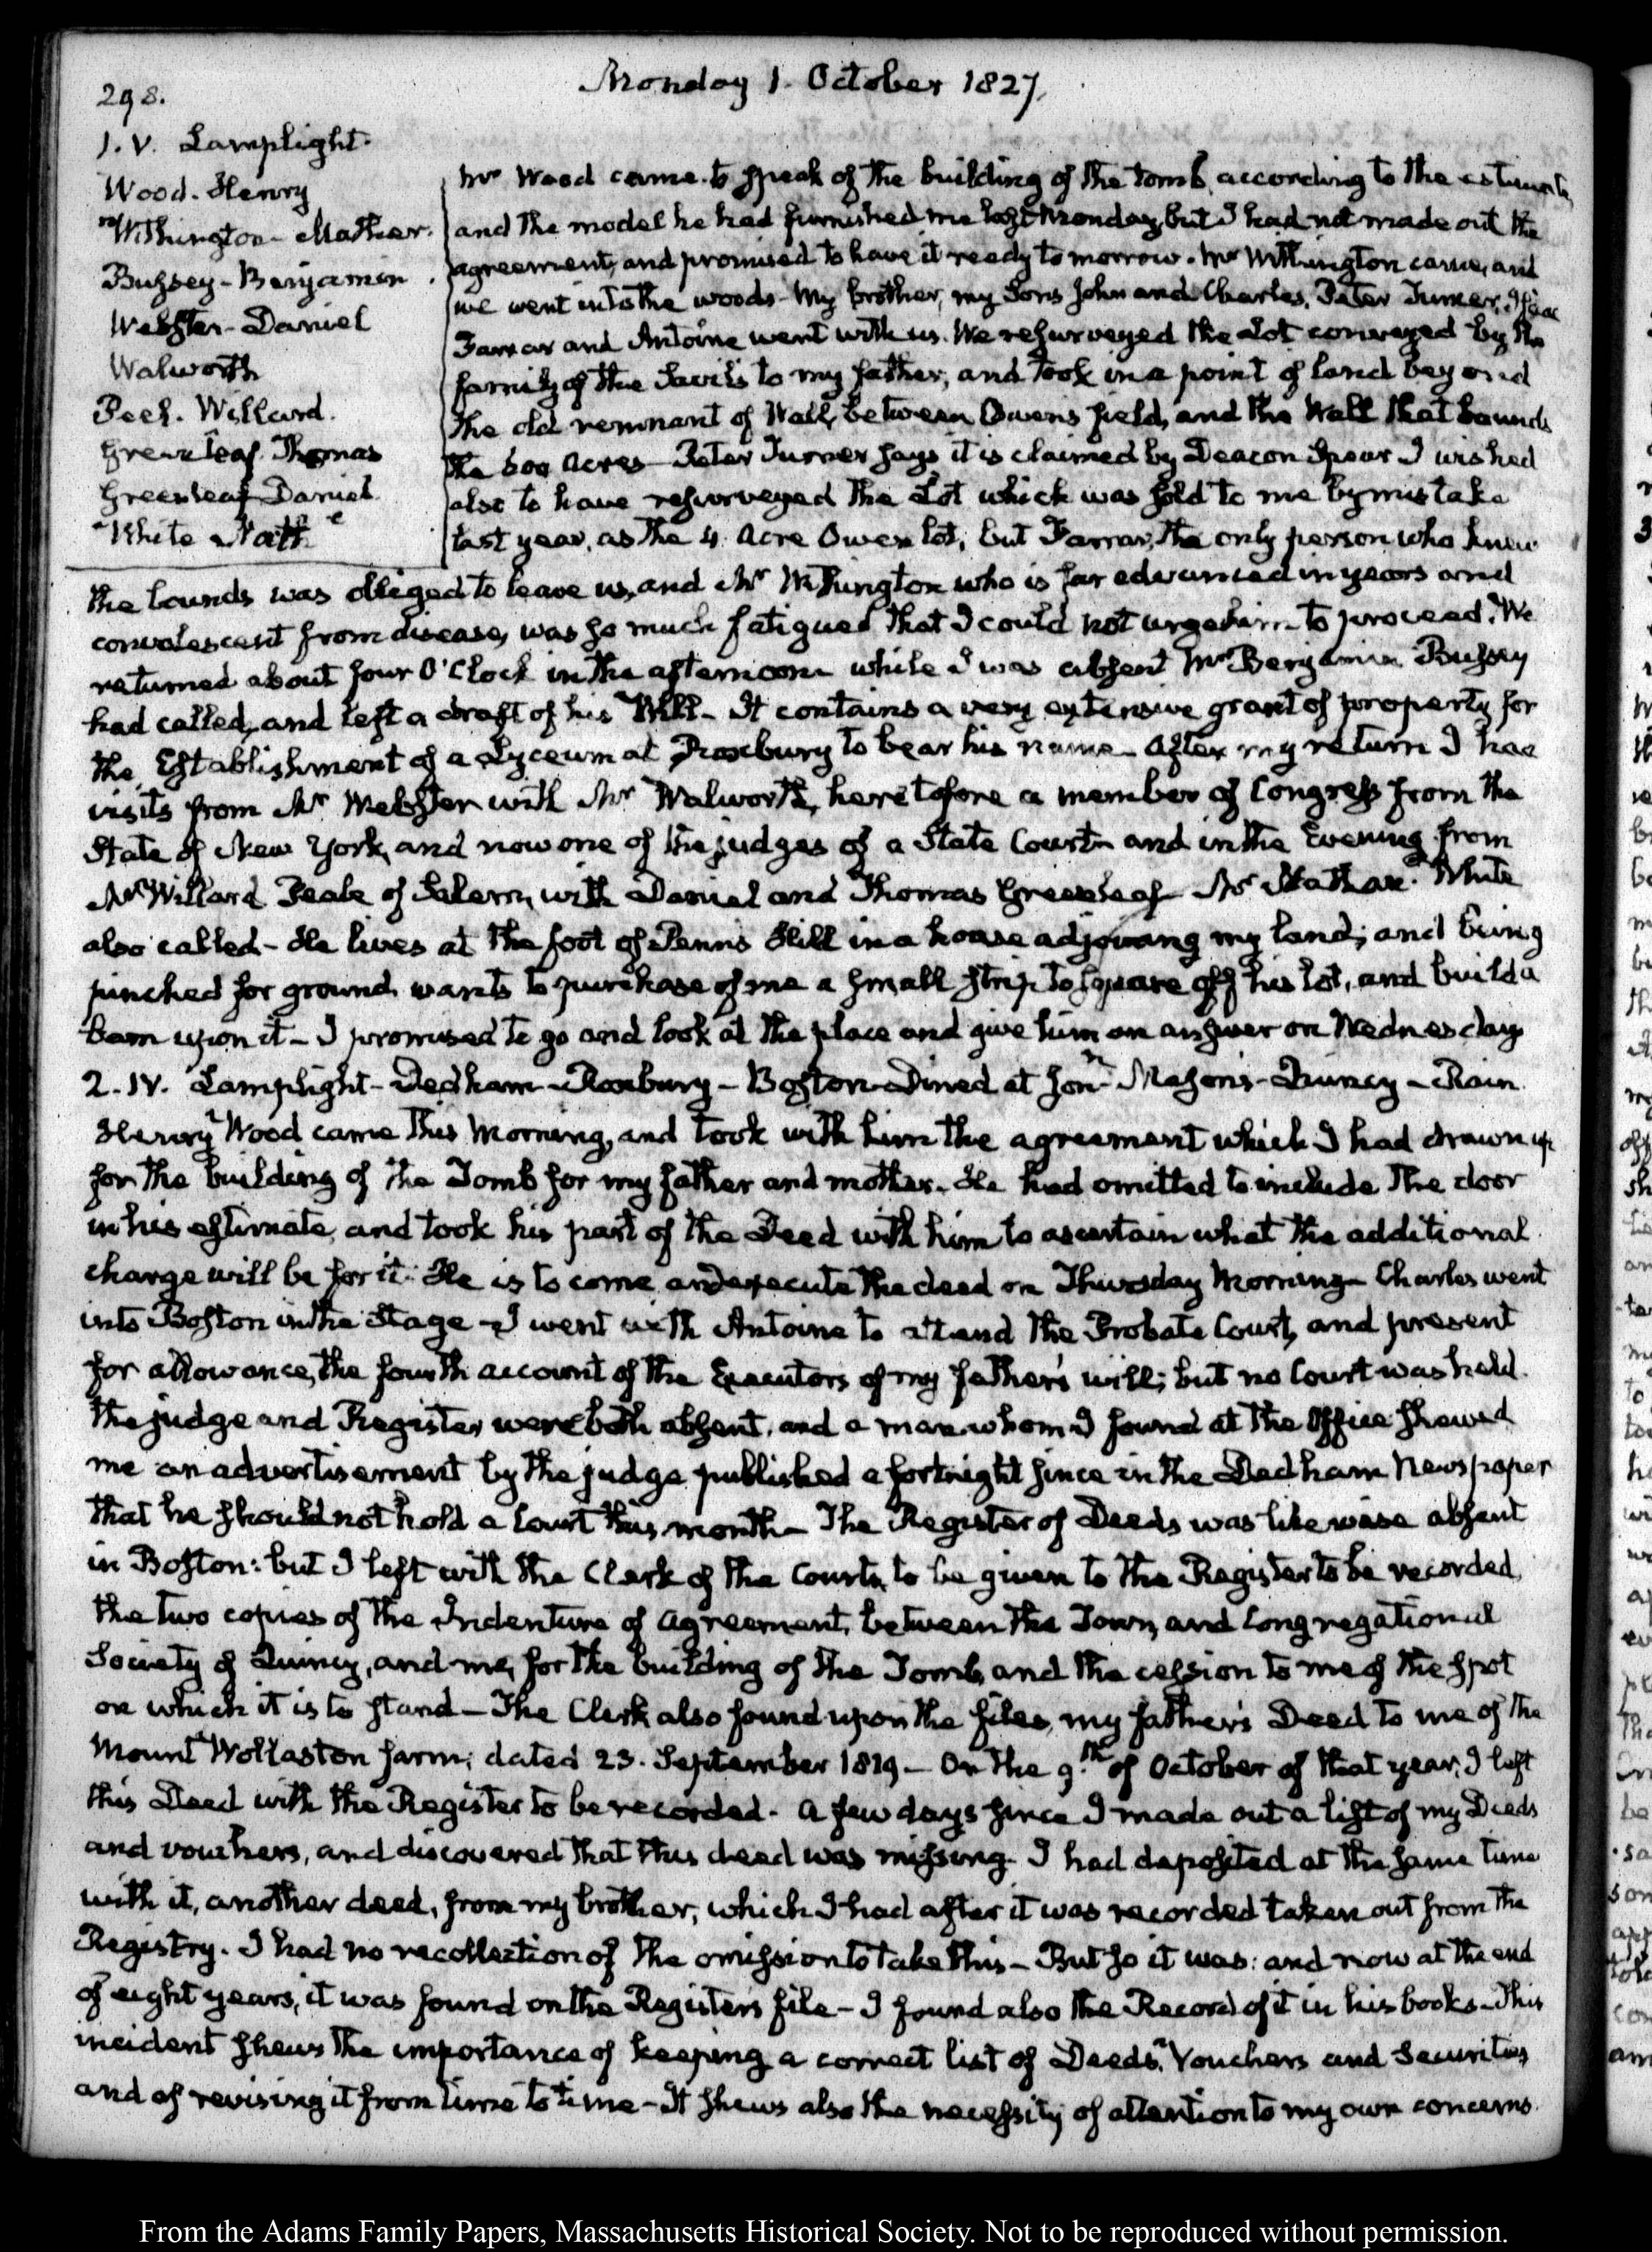 298.
Monday 1. October 1827.
1. V. Lamplight.
Wood. Henry
Withington - Mather.
Bussey - Benjamin
Webster - Daniel
Walworth
Peel. Willard.
Greenleaf Thomas
Greenleaf Daniel.
White Nath
Mr Wood came to speak of the building of the tomb, according to the estimate
and the model he had furnished me last Monday, but I had not made out the
agreement, and promised to have it ready to morrow. Mr Withington came, and
we went into the woods - My brother, my Sons John and Charles, Peter Turner,
Farrar and Antoine went with us. We resurveyed the Lot conveyed by the
family of the Savils to my father, and took in a point of land beyond
the old remnant of Wall, between Owens field, and the Wall that bounds
the 600 Acres - Peter Turner says it is claimed by Deacon Spear I wished
also to have resurveyed the Lot which was sold to me by mistake
last year, as the 4 Acre Owen lot, but Farrar, the only person who knew
the bounds was obliged to leave us, and Mr Withington who is far advanced in years and
convalescent from disease, was so much fatigued that I could not urge him to proceed. We
returned about four O'Clock in the afternoon while I was absent Mr Benjamin Bussey
had called, and left a draft of his Will - It contains a very extensive grant of property for
the Establishment of a Lyceum at Roxbury to bear his name - After my return I had
visits from Mr Webster with Mr Walworth, heretofore a member of Congress from the
State of New York, and now one of the judges of a State Court - and in the Evening from
Mr Willard Peale of Salem, with Daniel and Thomas Greenleaf - Mr White
also called - He lives at the foot of Penn's Hill in a house adjoining my land; and being
pinched for ground wants to purchase of me a small strip to square off his lot, and build a
barn upon it - I promised to go and look at the place and give him an answer on Wednesday
2. IV. Lamplight - Dedham - Roxbury - Boston Dined at Jonn Mason's - Quincy - Rain
Henry Wood came this Morning, and took with him the agreement which I had drawn up
for the building of the Tomb for my father and mother. He had omitted to include the door
in his estimate, and took his part of the Deed with him to ascertain what the additional
charge will be for it. He is to come and execute the deed on Thursday Morning - Charles went
into Boston in the Stage - I went with Antoine to attend the Probate Court, and present
for allowance, the fourth account of the Executors of my father's will; but no Court was held.
The judge and Register were both absent, and a man whom I found at the Office shewed
me an advertisement by the judge published a fortnight since in the Dedham Newspaper
that he should not hold a Court this month - The Register of Deeds was likewise absent
in Boston: but I left with the Clerk of the Courts, to be given to the Register to be recorded,
the two copies of the Indenture of agreement, between the Town, and Congregational
Society of Quincy, and me, for the building of the Tomb, and the cession to me of the spot
on which it is to stand - The Clerk also found upon the files, my father's Deed to me of the
Mount Wollaston farm, dated 23. September 1819 - On the 9.th of October of that year, I left
this Deed with the Register to be recorded. A few days since I made out a list of my Deeds
and vouchers, and discovered that this deed was missing. I had deposited at the same time
with it, another deed, from my brother, which I had after it was recorded taken out from the
Registry. I had no recollection of the omission to take this - But so it was: and now at the end
of eight years, it was found on the Registers file - I found also the Record of it in his books. This
incident shews the importance of keeping a correct list of Deeds, Vouchers and Securities
and of revising it from time to time - It shews also the necessity of attention to my own concerns.
From the Adams Family Papers, Massachusetts Historical Society. Not to be reproduced without permission.